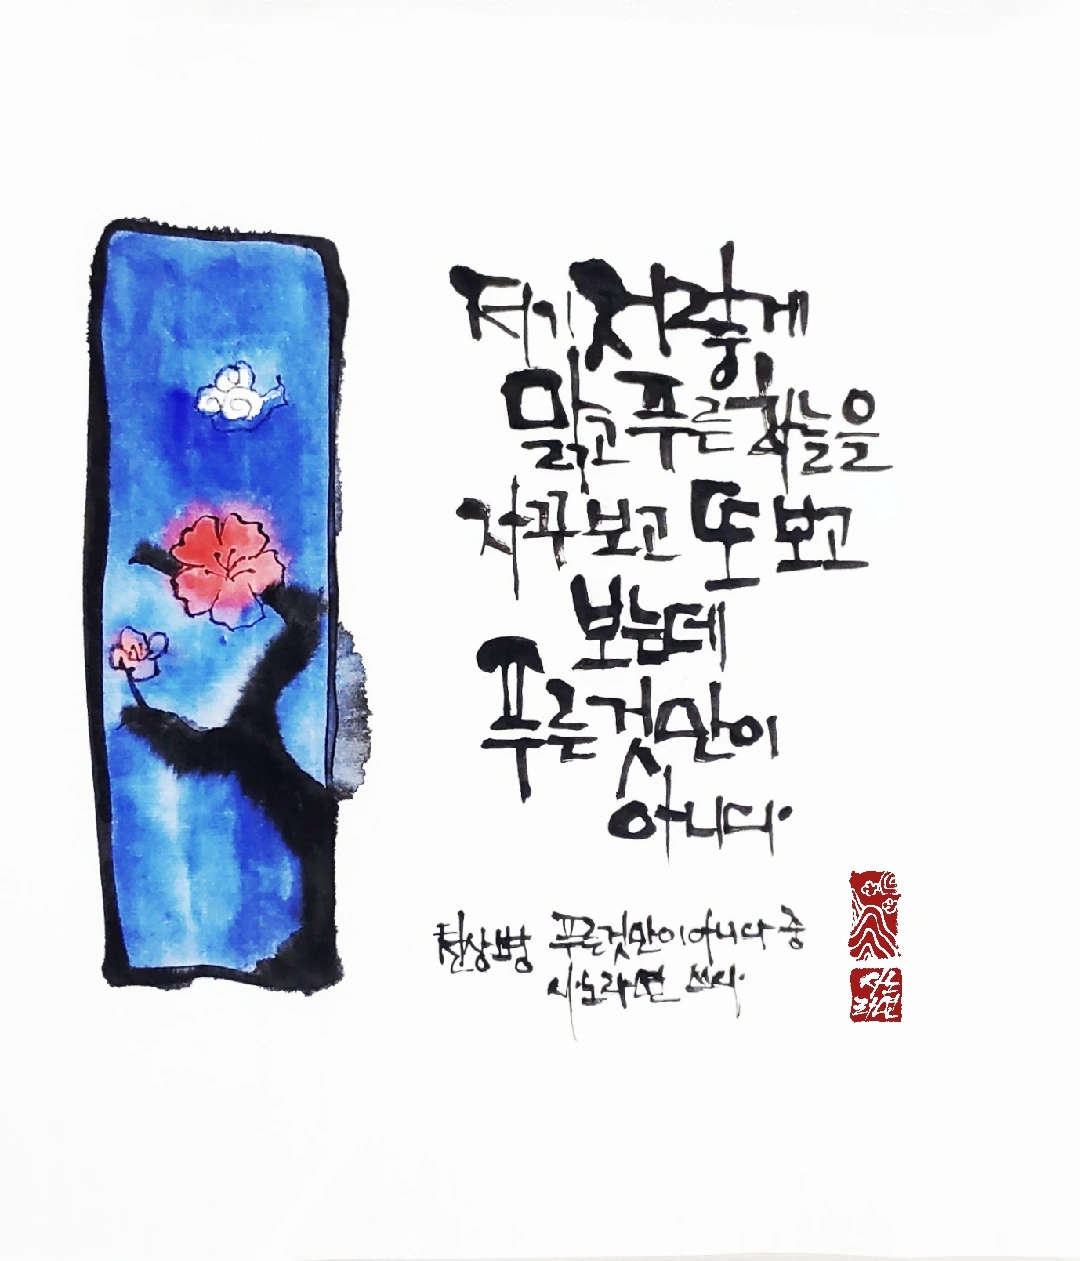 저기 저렇게
맑고 푸른 하늘을
자꾸 보고 또 보고
보는데
푸른 것만이
아니다.
천상병 푸른 것만이 아니다 중
시·노라면 쓰다.